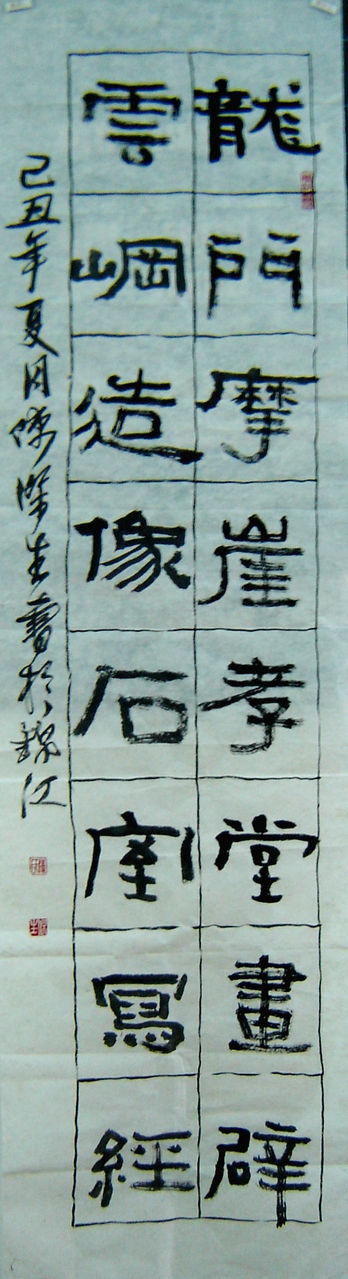 龍門摩崖孝堂畫辟
雲崗造像石室寫經
己丑年夏月陳深生書於錦江